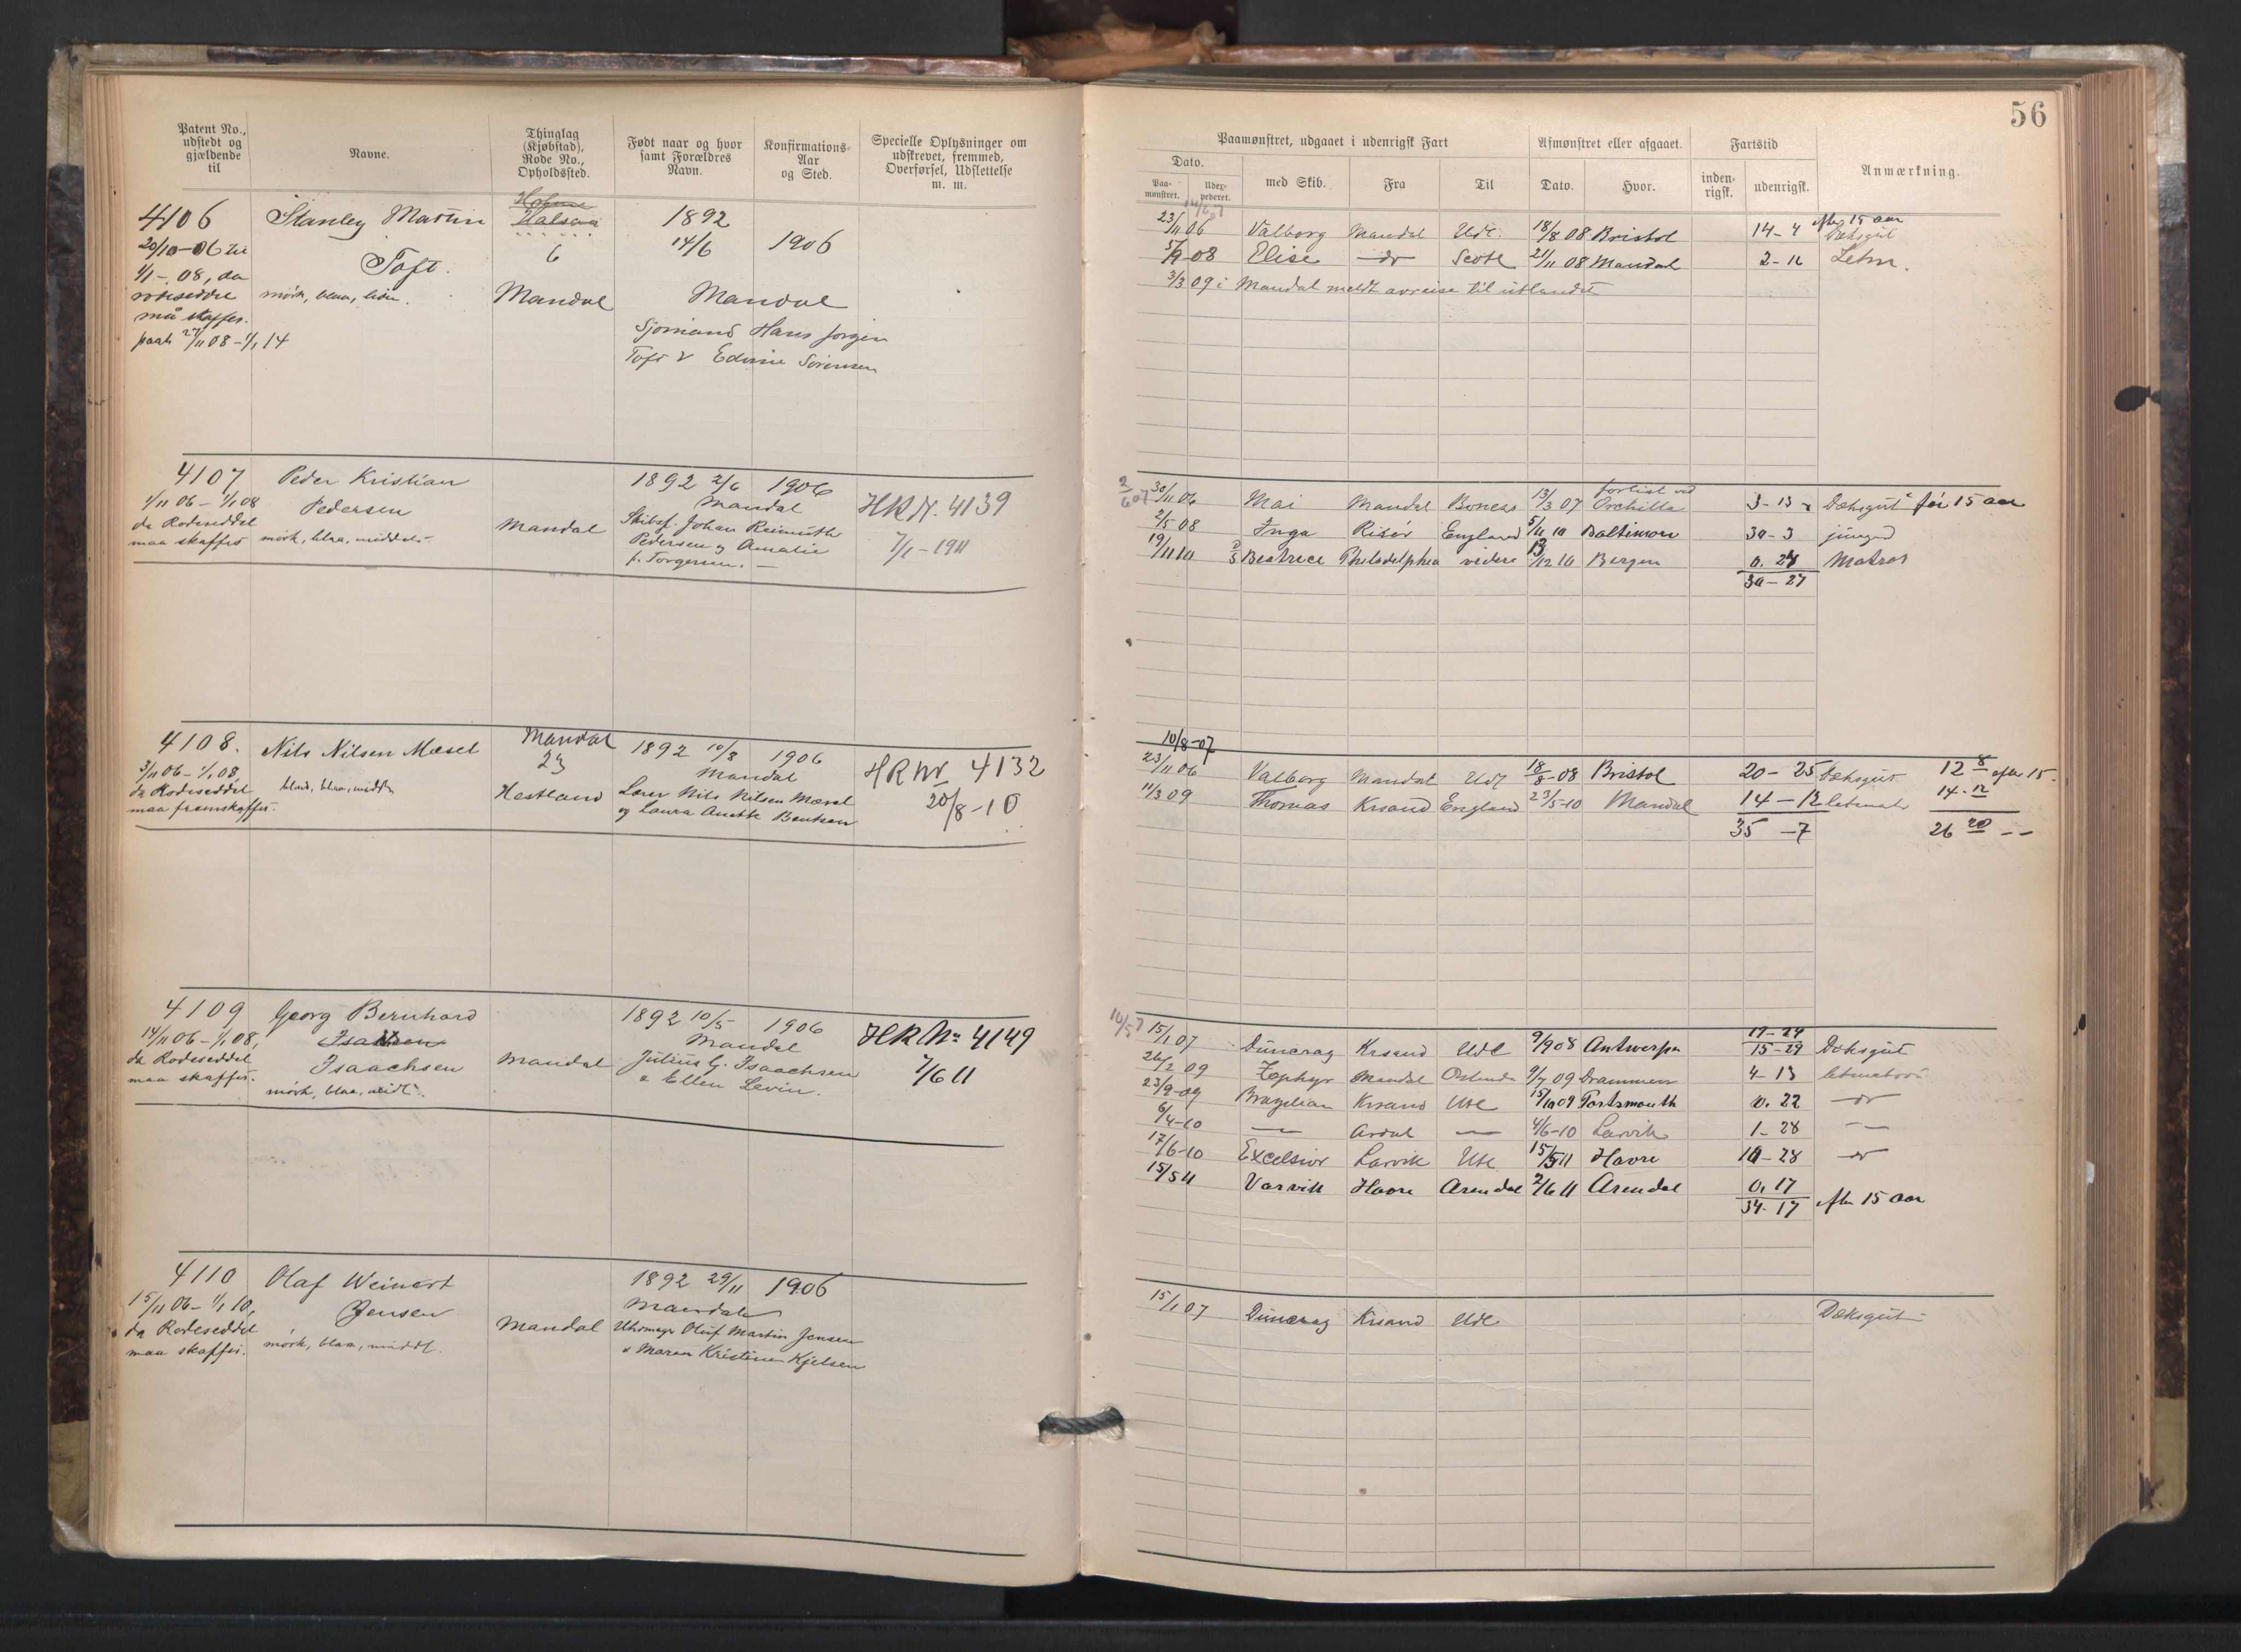 56
Patent No., udstedt og gjældende til
Navne.
Thinglag (Kjøbstad), Rode No., Opholdssted.
Født naar og hvor samt Forældres Navn.
Konfirmations-Aar og Sted.
Specielle Oplysninger om udskrevet, fremmed, Overførsel, Udslettelse m. m.
Paamønstret, udgaaet i udenrigsk Fart
Afmønstret eller afgaaet.
Fartstid
Anmærkning.
Dato.
Paa-mønstret.
Udex-pederet.
med Skib.
Fra
Til
Dato.
Hvor.
inden-rigsk.
udenrigsk.
4106 Stanley Martin Halsaa 1892
20/10-06 til 6 14/6 1906
1/1-08, da Toft.
rodeseddel mørk, blaa, liden. Mandal Mandal
må skaffes. Sjømand Hans Jørgen
paat 27/11 08 - 1/1 14 Toft & Edvine Sørensen
23/11 06 Valborg Mandal Udl. 18/8 08 Bristol 14-4 efter 15 aar Dæksgut
5/9-08 Elise do Scotl 21/11 08 Mandal 2-16 Letm.
3/3 09 i Mandal meldt avreise til utlandet
4107 Peder Kristian 1892 2/6 1906
1/11 06 - 1/1 08 Pedersen Mandal HRN. 4139
da Rodeseddel Mandal Skibsf. Johan Reimuth
maa skaffes mørk, blaa, middels. Pedersen og Amalie 7/1-1911
f. Torgersen.
30/11 06 Mai Mandal Boness 13/3 07 forlist ved Orchilla 3-13 Dæksgut før 15 aar
2/5 08 Inga Risør England 5/11 10 Baltimore 30-3 jungm
19/11 10 Beatrice Philadelphia videre 13/12 10 Bergen 0.24 Matros
30-27
4108. Nils Nilsen Mæsel Mandal 1892 10/8 1906
3/11 06 - 1/1 08, 23 Mandal HRNr 4132
da Rodeseddel blond, blaa, middls Hestland Lærer Nils Nilsen Mæsel 20/8-10
maa fremskaffes. og Laura Anette Bentsen
10/8-07
23/11 06 Valborg Mandal Udl 18/8-08 Bristol 20-25 Dæksgut 12 8 efter 15.
11/3 09 Thomas Krsand England 23/5-10 Mandal 14-12 letmat 14-12
35-7 26 20
4109 Georg Bernhard 1892 10/5 1906
14/11 06 - 1/1 08, Mandal HRNo 4149
da Rodeseddel Isaachsen Mandal Julius G. Isaachsen 7/6 11
maa skaffes. mørk, blaa, midl. & Ellen Levin.
19-24
15/1 07 Dunerag Krsand Udl 9/9 08 Antwerpn 15-29 Dæksgut
26/2 09 Zephyr Mandal Ostende 9/7 09 Drammen 4-13 letmatros
23/9-09 Brazilian Krsand Utl 15/10 09 Portsmouth 0.22 do
6/4-10 Ardal 4/6-10 Larvik 1-28
17/6-10 Excelsior Larvik Utl 15/5 11 Havre 10-28 do
15/5 11 Varvik Havre Arendal 2/6 11 Arendal 0.17
34-17 efter 15 aar
4110 Olaf Weinert 1892 29/11 1906
15/11 06 - 1/1 10, Jensen Mandal
da Rodeseddel Mandal Uhrmagr Oluf Martin Jensen
maa skaffes. mørk, blaa, middl. & Maren Kristine Kjelsen
15/1 07 Dunerag Krsand Udl Dæksgut